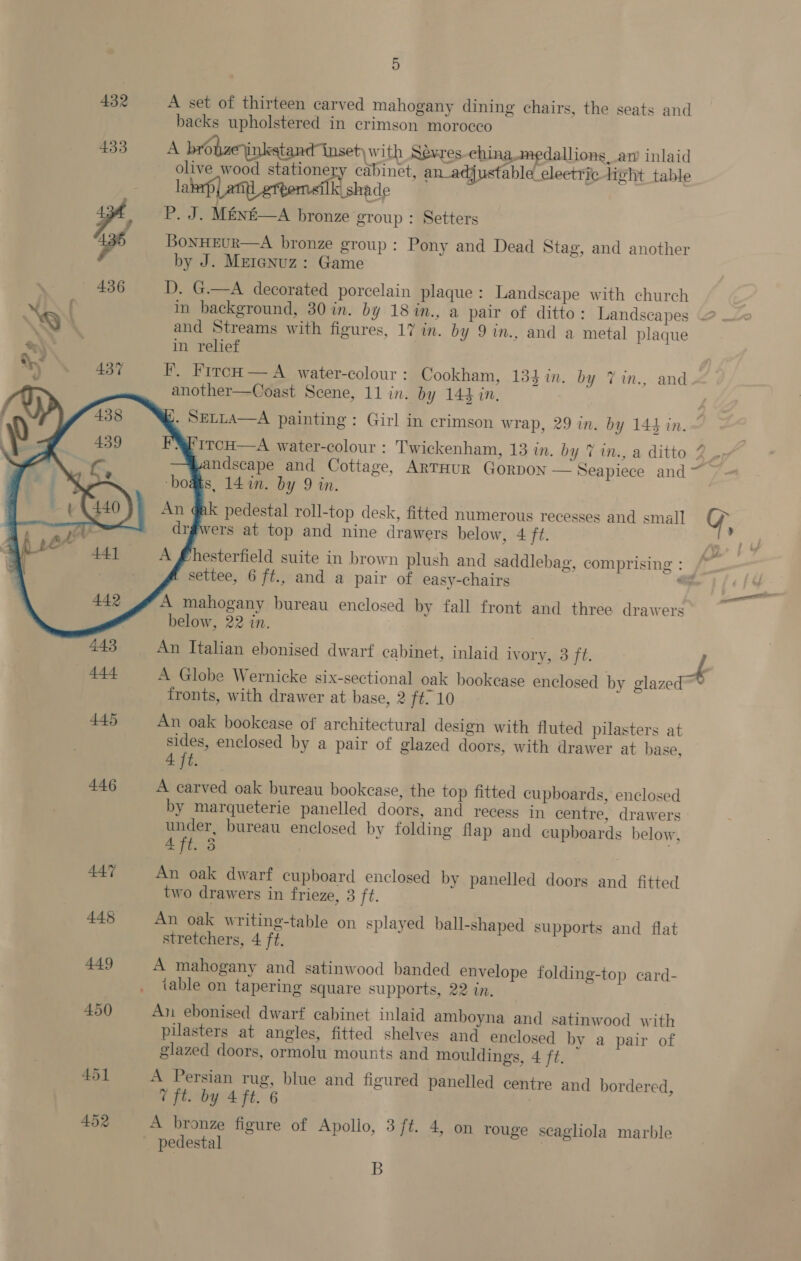 5
432 A set of thirteen carved mahogany dining chairs, the seats and
backs upholstered in crimson morocco
433 A bronze inkstand inset with Sèvres china medallions, an inlaid
olive wood stationery cabinet, an adjustable electric light table
lamp and green silk shade
434 P. J. MÉNÉ—A bronze group : Setters
435 BONHEUR—A bronze group : Pony and Dead Stag, and another
by J. MEIGNUZ : Game
436 D. G.—A decorated porcelain plaque : Landscape with church
in background, 30 in. by 18 in., a pair of ditto : Landscapes
and Streams with figures, 17 in. by 9 in., and a metal plaque
in relief
437 F. FITCH — A water-colour : Cookham, 13½ in. by 7 in., and
another—Coast Scene, 11 in. by 14½ in.
438 E. SELLA—A painting : Girl in crimson wrap, 29 in. by 14½ in.
439 F. FITCH—A water-colour : Twickenham, 13 in. by 7 in., a ditto
—Landscape and Cottage, ARTHUR GORDON — Seapiece and
boats, 14 in. by 9 in.
440 An oak pedestal roll-top desk, fitted numerous recesses and small
drawers at top and nine drawers below, 4 ft.
441 A Chesterfield suite in brown plush and saddlebag, comprising :
settee, 6 ft., and a pair of easy-chairs
442 A mahogany bureau enclosed by fall front and three drawers
below, 22 in.
443 An Italian ebonised dwarf cabinet, inlaid ivory, 3 ft.
444 A Globe Wernicke six-sectional oak bookcase enclosed by glazed
fronts, with drawer at base, 2 ft. 10
445 An oak bookcase of architectural design with fluted pilasters at
sides, enclosed by a pair of glazed doors, with drawer at base,
4 ft.
446 A carved oak bureau bookcase, the top fitted cupboards, enclosed
by marqueterie panelled doors, and recess in centre, drawers
under, bureau enclosed by folding flap and cupboards below,
4 ft. 3
447 An oak dwarf cupboard enclosed by panelled doors and fitted
two drawers in frieze, 3 ft.
448 An oak writing-table on splayed ball-shaped supports and flat
stretchers, 4 ft.
449 A mahogany and satinwood banded envelope folding-top card-
table on tapering square supports, 22 in.
450 An ebonised dwarf cabinet inlaid amboyna and satinwood with
pilasters at angles, fitted shelves and enclosed by a pair of
glazed doors, ormolu mounts and mouldings, 4 ft.
451 A Persian rug, blue and figured panelled centre and bordered,
7 ft. by 4 ft. 6
452 A bronze figure of Apollo, 3 ft. 4, on rouge scagliola marble
pedestal
B